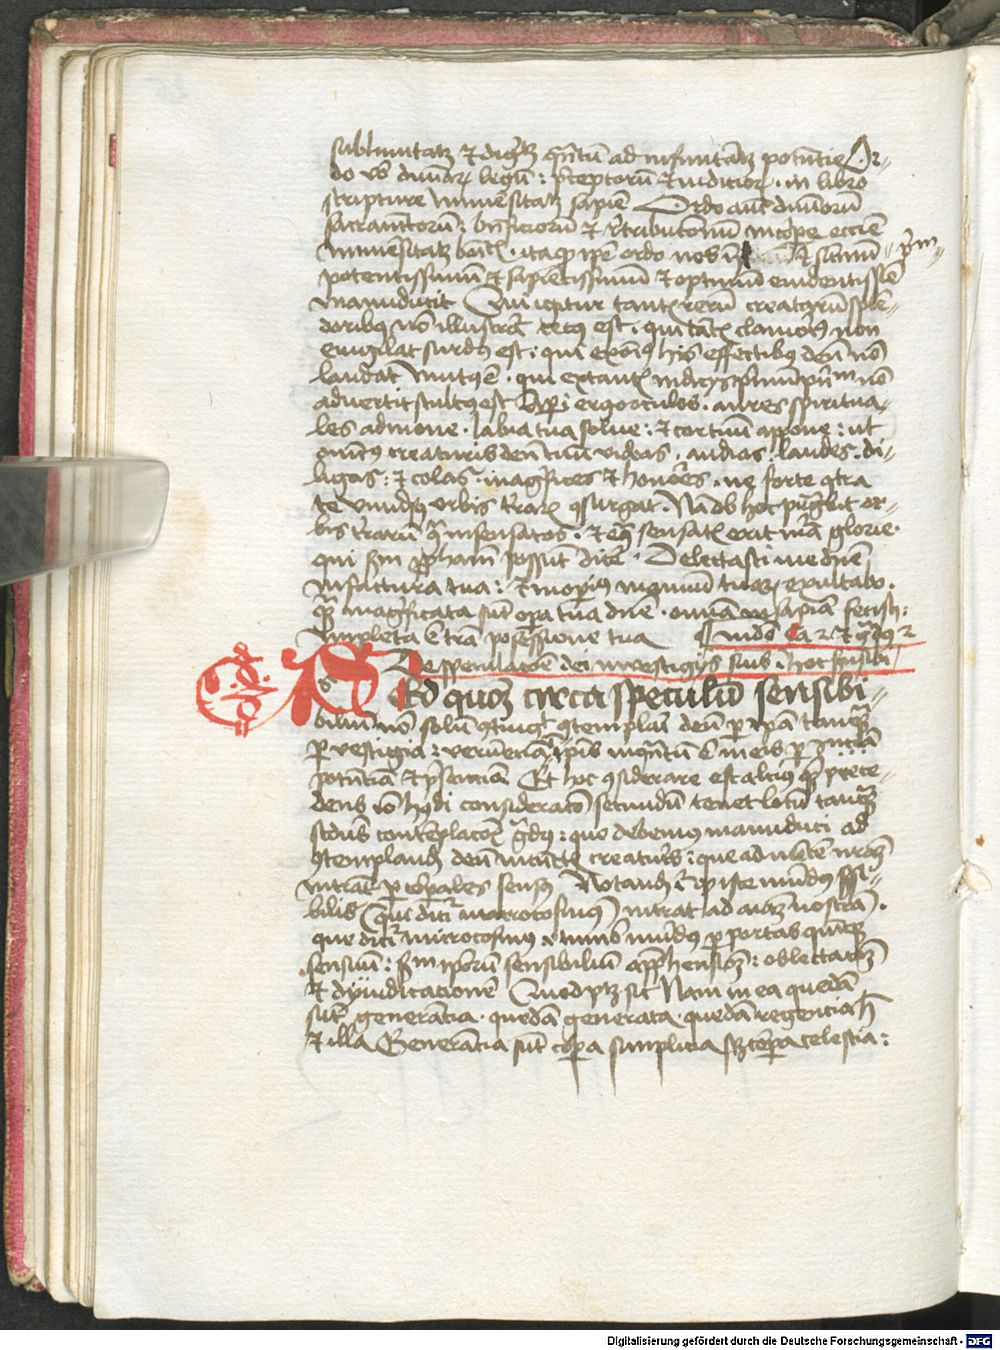 sublimitatem et dignitatem quantum ad infinitatem potentie Or-
do vero divinarum legum : preceptorum et iudiciorum . in libro
scripture immensitatem sapiencie Ordo autem divinorum
sacramentorum : beneficiorum et retributionum in corpore ecclesie
immensitatem bonitatis . itaque ipse ordo nos in et summum primum
potentissimum et sapientissimum et optimum evidentissime
manuducit Qui igitur tantis rerum creaturum splen-
doribus non illustratur cecus est . qui tantis clamoribus non
evigilat surdus est . qui ex omnibus hiis effectibus deum non
laudat mutus est . qui ex tantis indicijs primum principium non
advertit stultus est Aperi ergo oculos . aures spiritua-
les admove . labia tua solve : et cor tuum appone : ut
omnibus creaturis deum tuum videas . audias . laudes . di-
ligas : et colas . magnifices et honores . ne forte contra
te universus orbis terrarum consurgat . Nam ob hoc pugnabit or-
bis terrarum contra insensatos . et econtra sensatis erit materia glorie .
qui secundum prophetam possunt dicere . Delectasti me domine
in factura tua : et in operibus manuum tuarum exultabo .
quam magnificata sunt opera tua domine . omnia in sapientia fecisti :
impleta est terra possessione tua
De speculacione dei in vestigijs suis in hoc sensibili
Sed quoniam circa speculum sensibi-
lium non solum contingit contemplari deum per ipsa tamquam
per vestigia : verum eciam in ipsis inquantum est in eis per essenciam
potentiam et presenciam Et hoc considerare est altius quam prece-
dens ideo huiusmodi consideracio secundum tenet locum tamquam
secundus contemplacionis gradus : quo debemus manuduci ad
contemplandum deum in cunctis creaturis : que ad mentem nostram
intrant per corporales sensus Notandum igitur quod iste mundus sensi-
bilis qui dicitur macrocosmus intrat ad animam nostram .
que dicitur microcosmus minor mundus per portas quinque
sensuum : secundum ipsorum sensibilium apprehensionem : oblectacionem
et dyiudicationem Quod patet sic Nam in ea quedam
sunt generancia . quedam generata . quedam regencia hec
et illa Generancia sunt corpora simplicia scilicet corpora celestia :
Digitalisierung gefördert durch die Deutsche Forschungsgemeinschaft - DFG